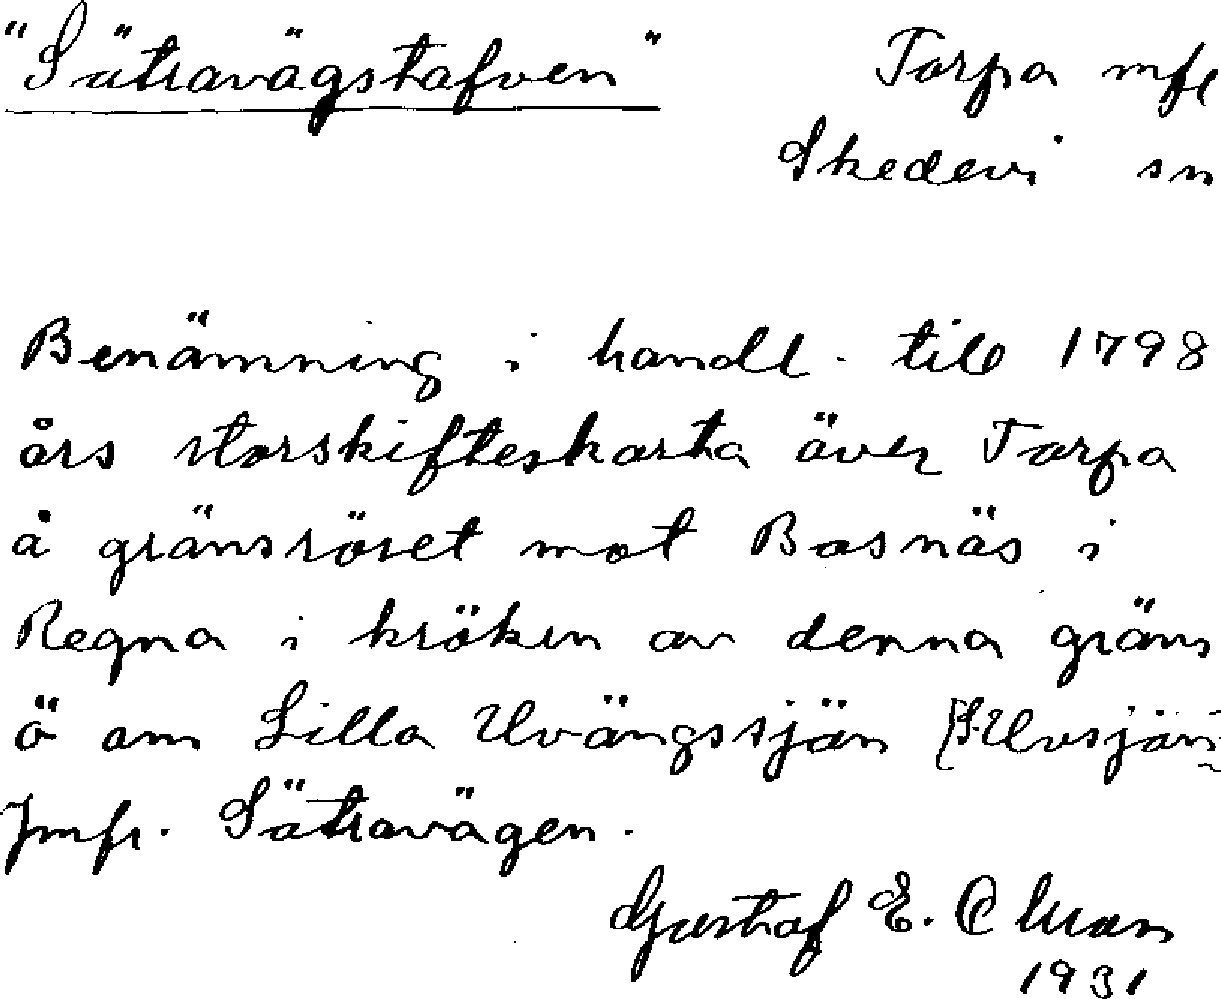 "Sätravägstafven" Torpa mfl
Skedevi sn
Benämning i handl. till 1798
års storskifteskarta över Torpa
å gränsröset mot Bosnäs i
Regna i kröken av denna gräns
ö om Lilla Ulvängssjön [L. Ulvsjön]
Jmfr. Sätravägen.
Gustaf E.
1931